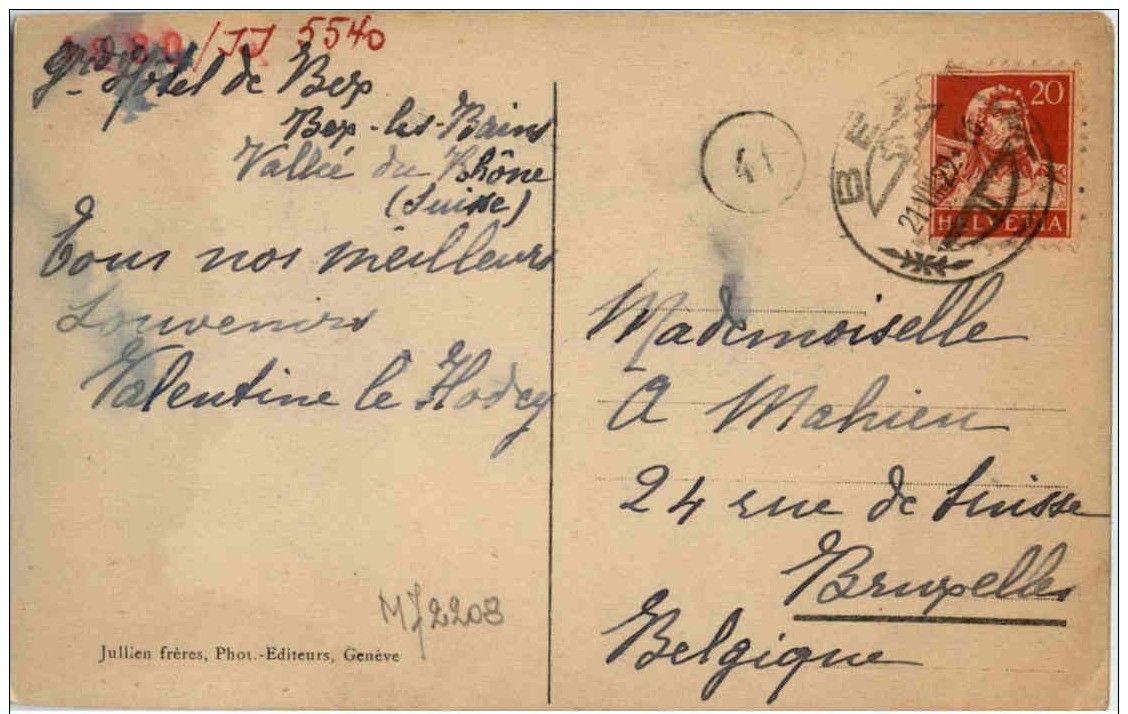 JJ 5540
Hôtel de Bex
Bex-les-Bains
Vallée du Rhône
(Suisse)
Tous nos meilleurs
souvenirs
Valentine le Hodey
MJ2203
Jullien frères, Phot.-Editeurs, Genève
41
BEX
20
HELVETIA
Mademoiselle
A Mahieu
24 rue de Suisse
Bruxelles
Belgique